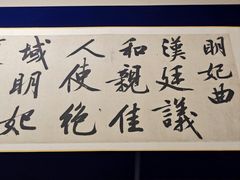 明妃曲
漢廷議
和親佳
人使絕
域明妃